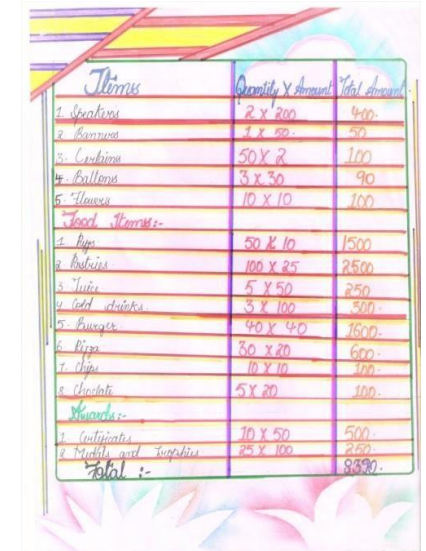 Items Quantity X Amount Total Amount.
1. Speakers 2 X 200 400.
2. Banners 1 X 50. 50
3. Curtains 50 X 2 100
4. Ballons 3 X 30 90
5. Flowers 10 X 10 100
Food Items:-
1. 50 X 10 1500
2. Pastries 100 X 25 2500
3. Juice 5 X 50 250
4. Cold drinks. 3 X 100 300.
5. Burger 40 X 40 1600.
6. Pizza 30 X 20 600.
7. Chips 10 X 10 100.
8. Choclate 5 X 20 100.
Awards:-
1. Certificates 10 X 50 500.
2. Medals and Trophies 25 X 100 250.
Total :- 8390.